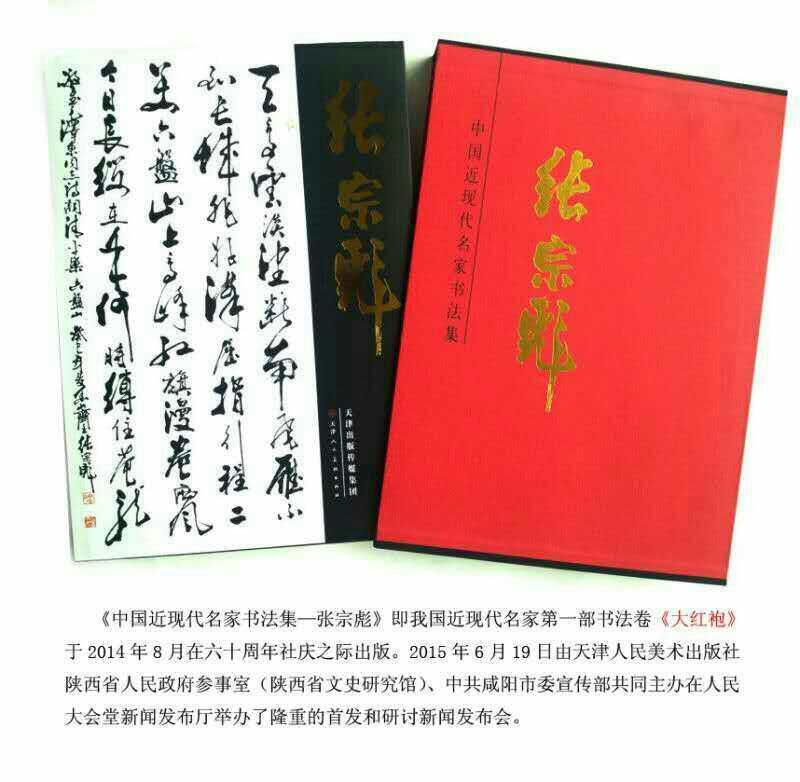 天高雲淡望斷南飛雁不
到長城非好漢屈指行程二
万六盤山上高峰红旗漫卷西風
今日長缨在手何時縛住苍龍
六盤山
张宗彪
天津出版传媒集团
天津人民美术出版社
中国近现代名家书法集
张宗彪
《中国近现代名家书法集—张宗彪》即我国近现代名家第一部书法卷《大红袍》
于 2014 年 8 月在六十周年社庆之际出版。2015 年 6 月 19 日由天津人民美术出版社
陕西省人民政府参事室（陕西省文史研究馆）、中共咸阳市委宣传部共同主办在人民
大会堂新闻发布厅举办了隆重的首发和研讨新闻发布会。